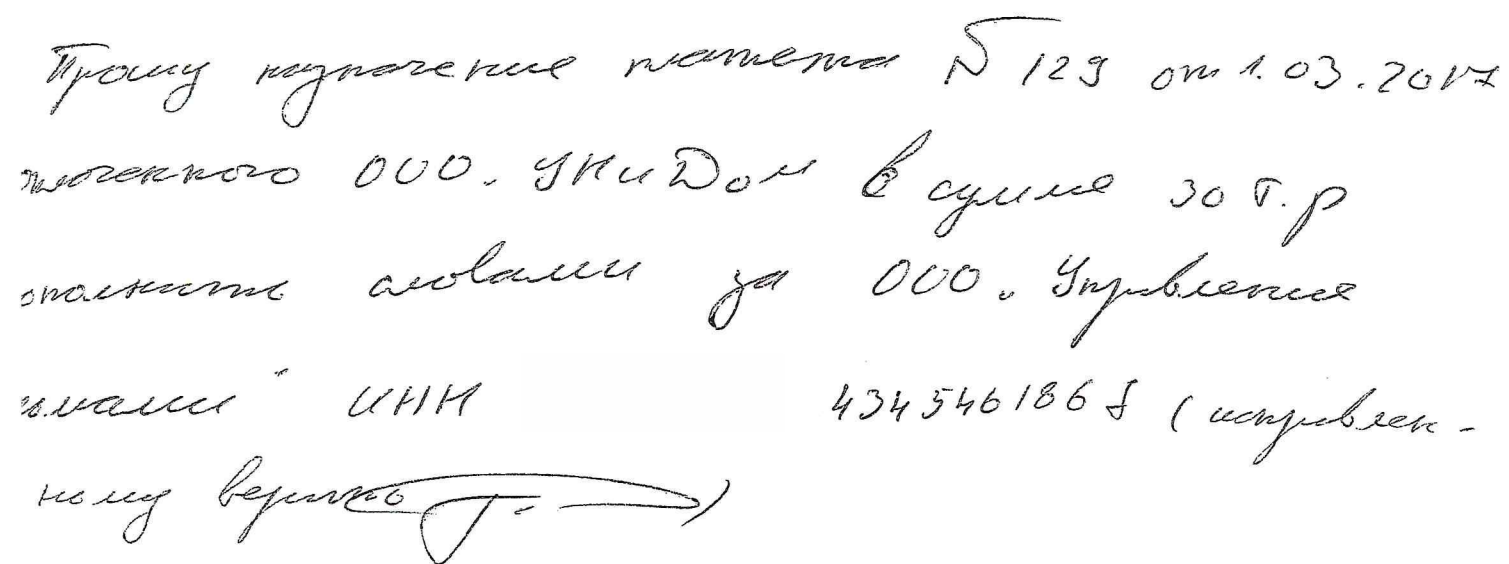 Прошу назначение платежа № 129 от 1.03.2017
ООО. УниДом в сумме 30 т.р
словами за ООО. Управление
ИНН 434546186 (исправлен-
ному верить)